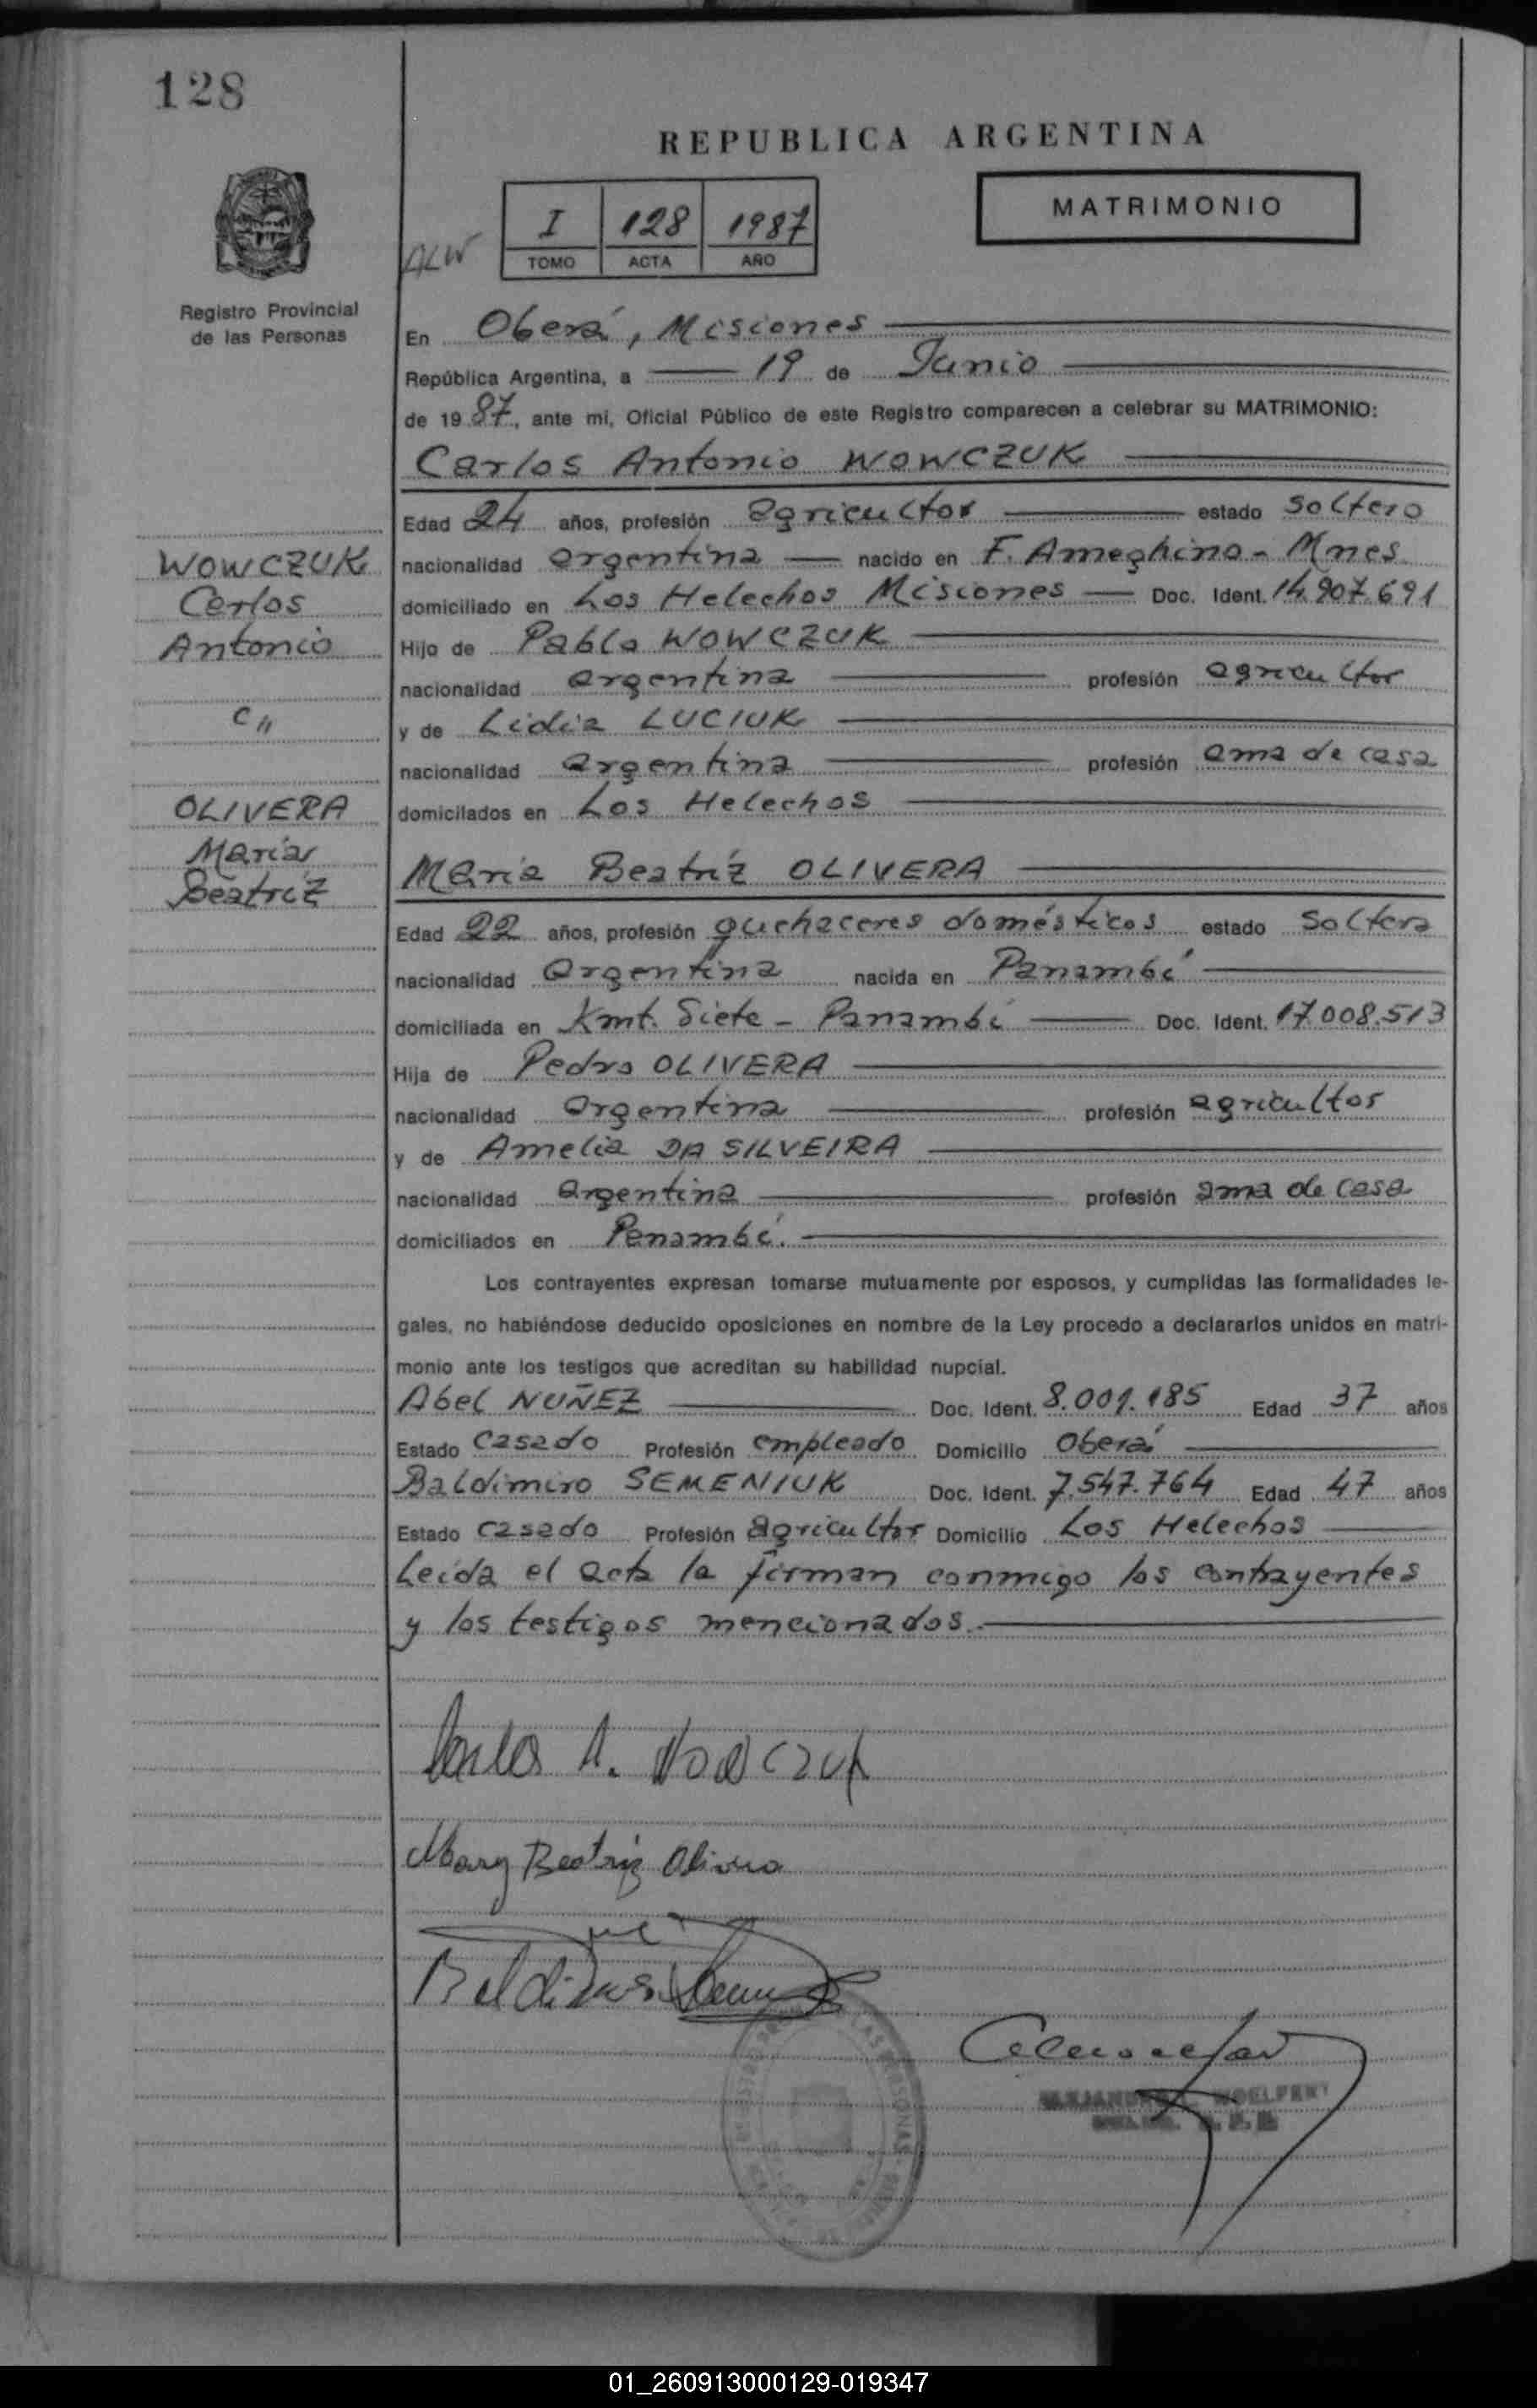 128
REPUBLICA ARGENTINA
MATRIMONIO
I 128 1987
TOMO ACTA AÑO
ALW
Registro Provincial
de las Personas
En Oberá, Misiones
República Argentina, a 19 de Junio
de 1987, ante mi, Oficial Público de este Registro comparecen a celebrar su MATRIMONIO:
Carlos Antonio WOWCZUK
Edad 24 años, profesión agricultor estado soltero
WOWCZUK
nacionalidad argentina nacido en F. Ameghino - Mnes
Carlos
domiciliado en Los Helechos Misiones Doc. Ident. 14.907.691
Antonio
Hijo de Pablo WOWCZUK
nacionalidad argentina profesión agricultor
C"
y de Lidia LUCIUK
nacionalidad argentina profesión ama de casa
OLIVERA
domicilados en Los Helechos
María
Beatríz
María Beatríz OLIVERA
Edad 22 años, profesión quehaceres domésticos estado soltera
nacionalidad argentina nacida en Panambí
domiciliada en Kmt. Siete - Panambí Doc. Ident. 17.008.513
Hija de Pedro OLIVERA
nacionalidad argentina profesión agricultor
y de Amelia DA SILVEIRA
nacionalidad argentina profesión ama de casa
domiciliados en Panambí.
Los contrayentes expresan tomarse mutuamente por esposos, y cumplidas las formalidades le-
gales, no habiéndose deducido oposiciones en nombre de la Ley procedo a declararlos unidos en matri-
monio ante los testigos que acreditan su habilidad nupcial.
Abel NUÑEZ Doc. Ident. 8.001.185 Edad 37 años
Estado casado Profesión empleado Domicilio Oberá
Baldimiro SEMENIUK Doc. Ident. 7.547.764 Edad 47 años
Estado casado Profesión agricultor Domicilio Los Helechos
Leída el acta la firman conmigo los contrayentes
y los testigos mencionados.
Carlos A. WOWCZUK
Mary Beatriz Olivera
01_260913000129-019347